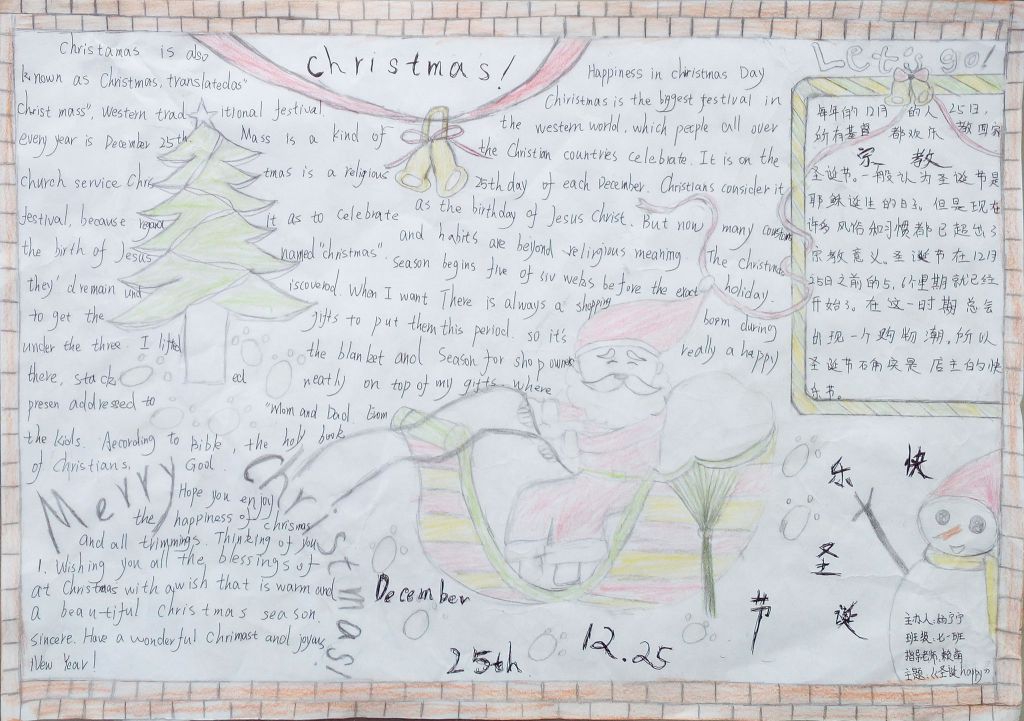 Christmas!
Let's go!
Christamas is also
known as Christmas, translatedas"
Christ mass", western trad itional festival.
every year is December 25th. Mass is a kind of
church service Chris tmas is a religious
festival, because it as to celebrate
the birth of Jesus named "christmas".
they'd remain und iscoverd. When I want
to get the gifts to put them
under the three. I lifted the blanket and
there, stacks ed neatly on top of my gifts where
presen addressed to "Mom and Dad. From
the kids. According to Bible, the holy book
of Christians, God.
Happiness in christmas Day
Chiristmas is the bggest festival in
the western world. which people call over
the Christian countries celebrate. It is on the
25th day of each December. Christians consider it
as the birthday of Jesus Christ. But now many constoms
and habits are beyond religrious meaning. The Christmas
season begins five of siv webas before the exact holiday.
There is always a shopping boom during
this period. so it's really a happy
Season for shop owners
每年的12月25日,
所有基督教国家的人都欢庆
宗教
圣诞节。一般认为圣诞节是
耶稣诞生的日子。但是现在
许多风俗和习惯都已超出了
宗教意义。圣诞节在12月
25日之前的5,6个星期就已经
开始了。在这一时期总会
出现一个购物潮,所以
圣诞节不偏实是店主的快
乐节。
Merry Christmas!
Hope you enjoy
the happiness of chrismas
and all trimmings. Thinking of you
1. Wishing you all the blessings of
at Christmas with a wish that is warm and
a beautiful christmas season.
sincere. Have a wonderful Chrimast and joyous
New Year!
December
25th
12.25
圣诞节快乐
主办人:杨宁宁
班级:七一班
指导老师:赖苗
主题:《圣诞happy》